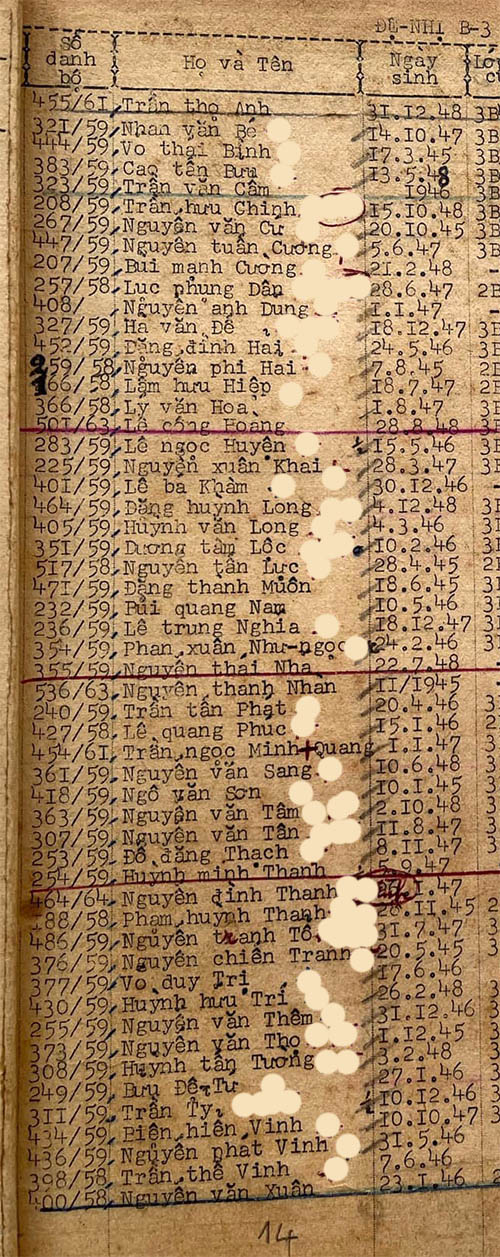 ĐỆ-NHỊ B-3
Số danh bộ Họ và Tên Ngày sinh
455/61 Trần thọ Anh 31.12.48 3B
321/59 Nhan văn Bé 14.10.47 3B
444/59 Vo thai Bình 17.3.45 3B
383/59 Cao tấn Bưu 13.5.48 3B
323/59 Trần văn Cầm 1946 3B
208/59 Trần hưu Chinh 15.10.48 3B
267/59 Nguyễn văn Cư 20.10.45 3B
447/59 Nguyễn tuấn Cương 5.6.47 3B
207/59 Bui mạnh Cương 21.2.48 -
257/58 Luc phung Dân 28.6.47 2B
408/ Nguyễn anh Dung 1.1.47 -
327/59 Ha văn Đê 18.12.47
452/59 Đăng đinh Hai 24.5.46
259/58 Nguyễn phi Hai 7.8.45
166/58 Lâm hưu Hiệp 18.7.47
366/58 Lý văn Hoa 1.8.47
501/63 Lê công Hoang 28.8.48
283/59 Lê ngọc Huyên 15.5.46
225/59 Nguyễn xuân Khai 28.3.47
401/59 Lê ba Khàm 30.12.46 -
464/59 Đặng huynh Long 4.12.48
405/59 Huỳnh văn Long 4.3.46
351/59 Dương tâm Lôc 10.2.46
517/58 Nguyễn tấn Lưc 28.4.45
471/59 Đặng thanh Muôn 18.6.45
232/59 Bùi quang Nam 10.5.46
236/59 Lê trung Nghia 18.12.47
354/59 Phan xuân Như-ngọc 24.2.46
355/59 Nguyễn thai Nha 22.7.48
536/63 Nguyễn thanh Nhan 11/1945 -
240/59 Trần tấn Phat 20.4.46
427/58 Lê quang Phuc 15.1.46
454/61 Trần ngọc Minh+Quang 1.1.47
361/59 Nguyễn văn Sang 10.6.48
418/59 Ngô văn Sơn 10.1.45
363/59 Nguyễn văn Tâm 2.10.48
307/59 Nguyễn văn Tân 11.8.47
253/59 Đỗ đăng Thach 8.11.47
254/59 Huynh minh Thanh 5.9.47
464/64 Nguyễn đình Thanh 1.47
188/58 Pham huynh Thanh 28.11.45
486/59 Nguyễn thanh Tô 31.7.47
376/59 Nguyễn chiến Tranh 20.5.45
377/59 Vo duy Tri 17.6.46
430/59 Huynh hưu Tri 26.2.48
255/59 Nguyễn văn Thêm 31.12.46
373/59 Nguyễn văn Tho 1.12.45
308/59 Huynh tấn Tương 3.2.48
249/59 Bưu Đê-Tư 27.1.46
311/59 Trần Ty 10.12.46
434/59 Biên hiên Vinh 10.10.47
436/59 Nguyễn phat Vinh 31.5.46
398/58 Trần thế Vinh 7.6.46
400/58 Nguyễn văn Xuân 23.1.46
14